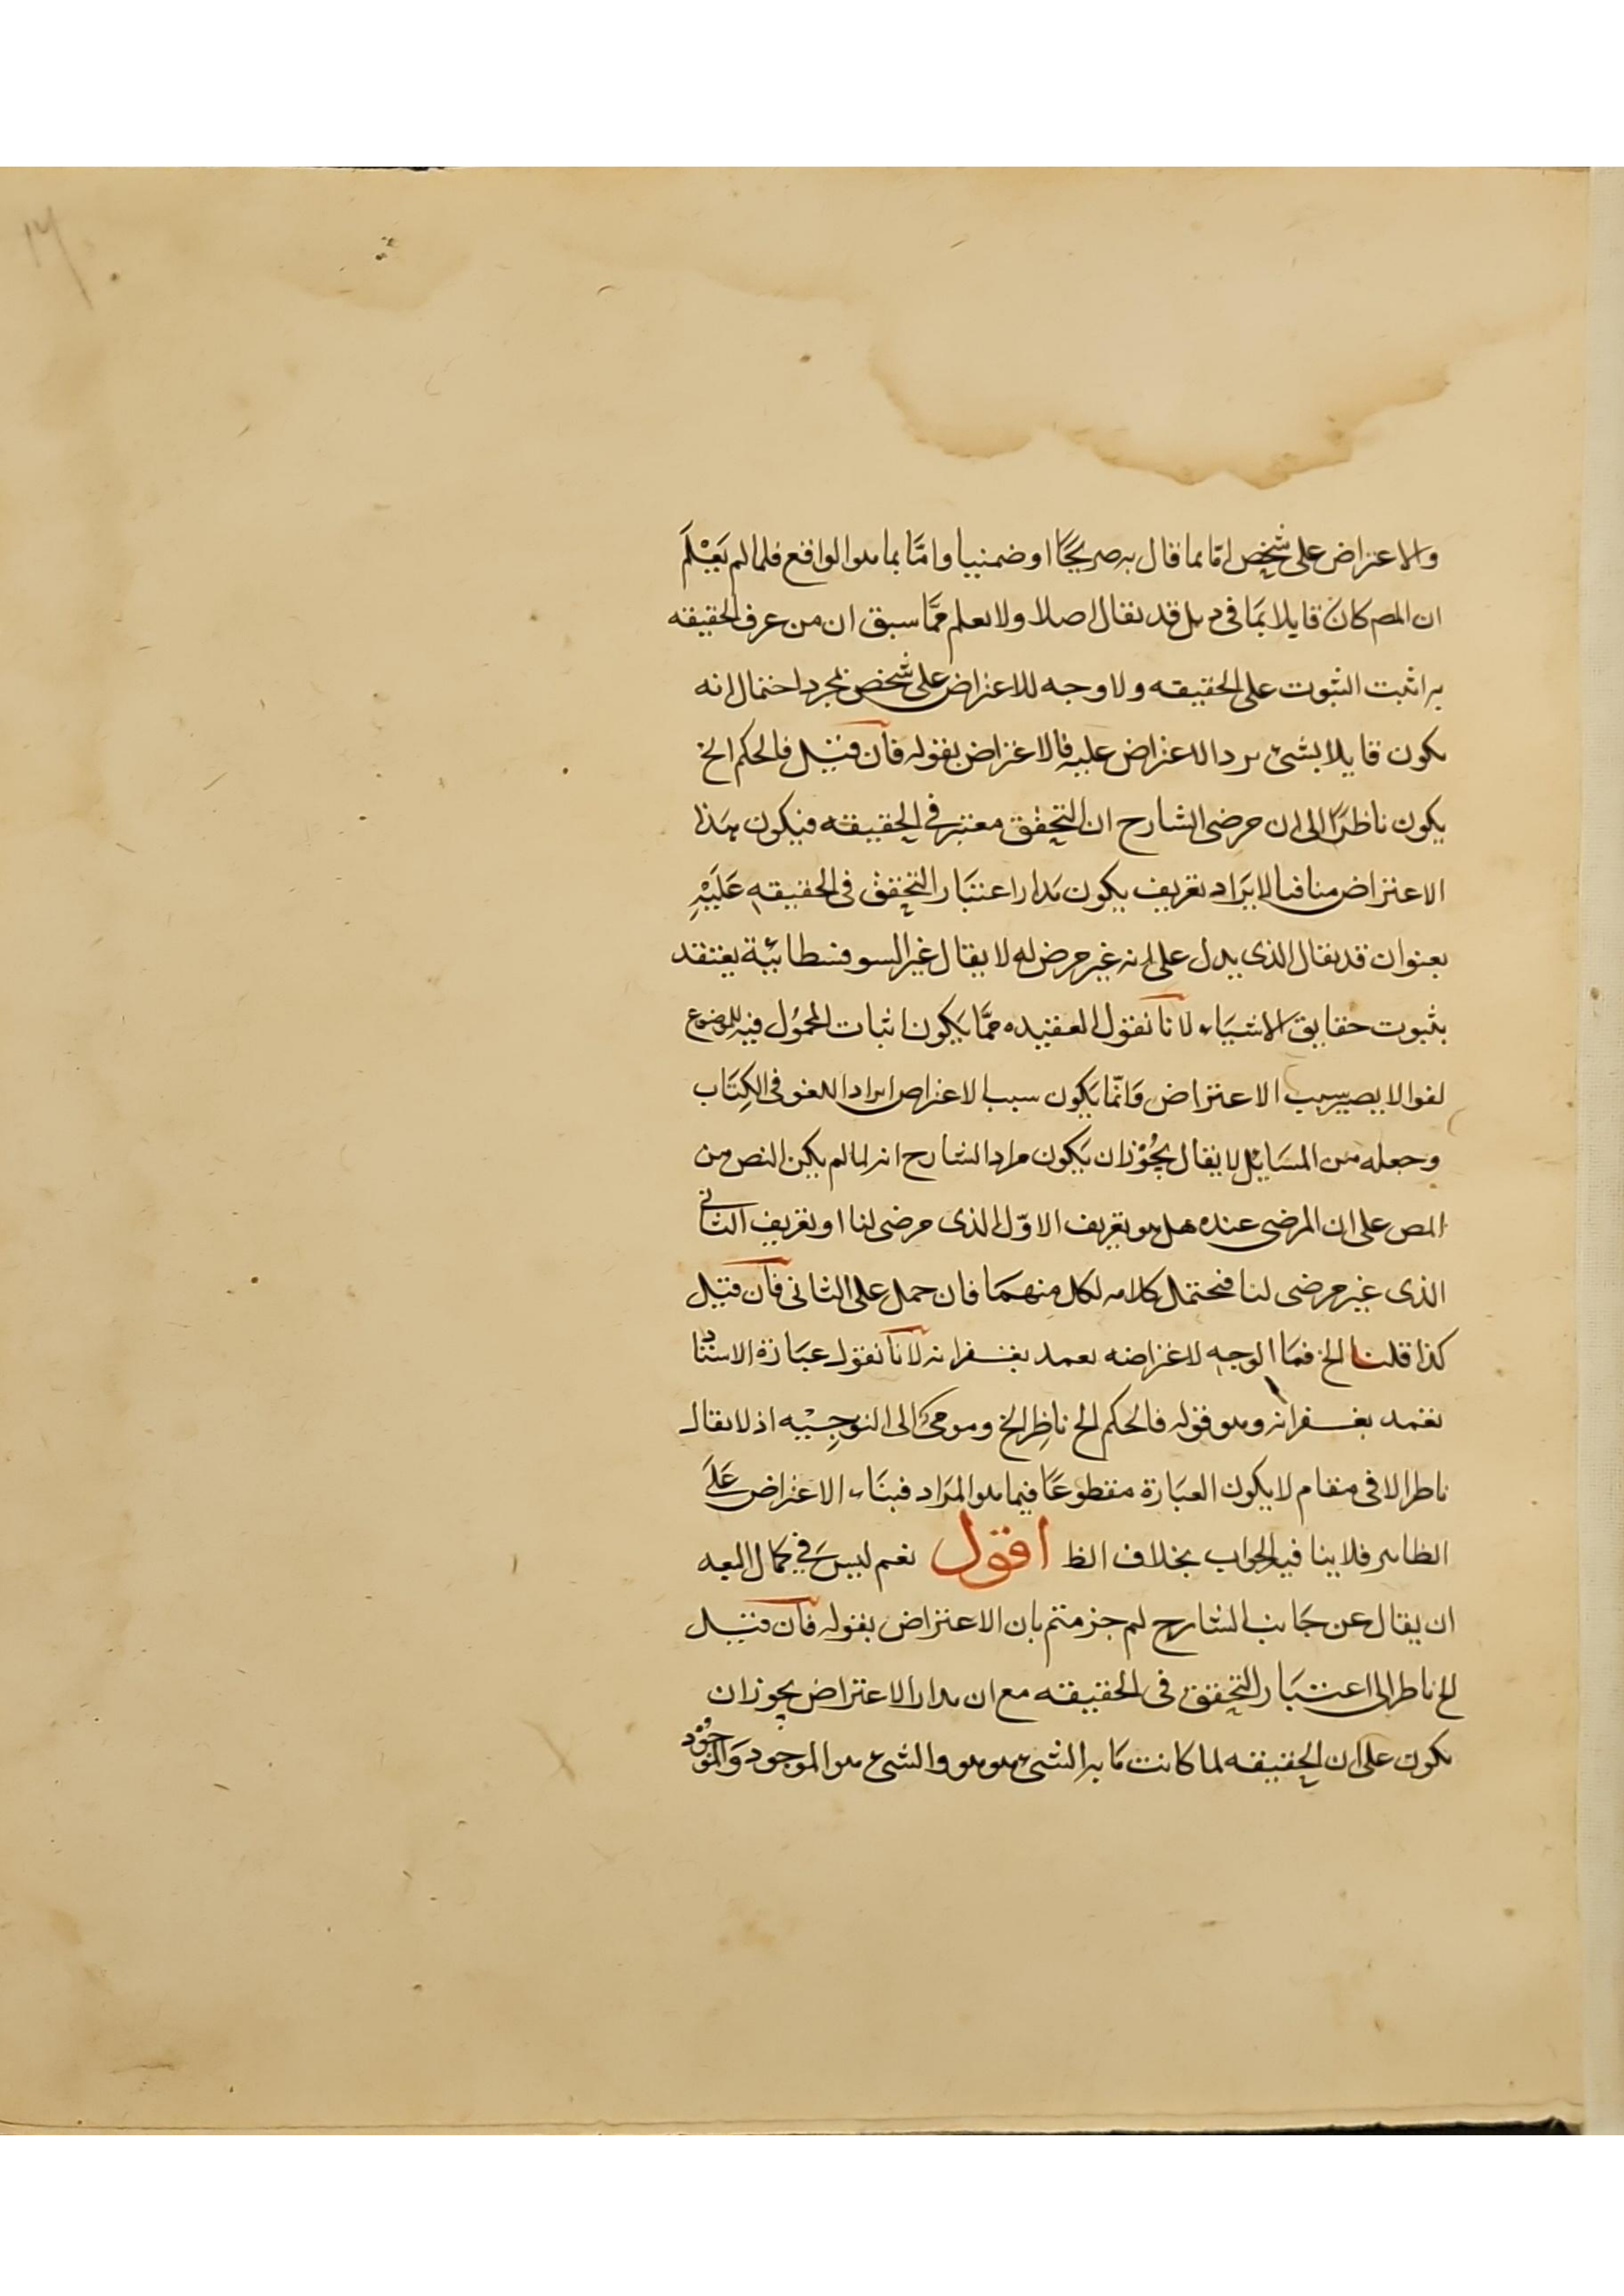 والاعتراض على شخص امّا بما قال به صريحًا او ضمنيا وامّا بما هو الواقع فلما لم يَعْلَم
ان المص كان قايلا بمَا في بل قد يقال اصلا ولا يعلم ممَّا سبق ان من عرف الحقيقه
به اثبت الثبوت على الحقيقه ولا وجه للاعتراض على شخص بمجرد احتمال انه
يكون قايلا بشئ يرد الاعتراض عليه فالاعتراض بقوله فان قيل فالحكم الخ
يكون ناظرًا الى ان مرضى الشارح ان التحقق معتبر في الحقيقه فيكون هذا
الاعتراض منافيا لايرَاد تعريف يكون مَدار اعتبَار التحقق فى الحقيقه عَلَيْهِ
بعنوان قد يقال الذى يدل على انه غير مرض له لا يقال غير السوفسطائية يعتقد
بثبوت حقايق الاشيَاء لانا نقول العقيده ممَّا يَكون اثبات المحمُول فيه للموضوع
لغوا لا يصير سبب الاعتراض وَانّما يَكون سبب الاعتراض ايراد اللغو فى الكِتَاب
وجعله من المسَايل لا يقال يجُوْز ان يَكون مراد الشارح انه لما لم يكن النص من
المص على ان المرضى عنده هل هو تعريف الاوّل الذى مرضى لنا او تعريف الثانى
الذى غير مرضى لنا فيحتمل كلامه لكل منهمَا فان حمل على الثانى فان قيل
كذا قلنا الخ فمَا الوجه لاعتراضه بعمد بغفرانه لانا نقول عبَارة الاستاد
تغمد بغفرانه وهو قوله فالحكم الخ ناظِر الخ ومومئ الى التوجِيْه اذ لا يقال
ناظر الا فى مقام لا يكون العبَارة مقطوعًا فيما هو المرَاد فبنَاء الاعتراض عَلَى
الظاهر فلا ينافيه الجواب بخلاف الظ اقول نعم ليسَ فى كمال البعد
ان يقال عن جَانب الشارح لم جزمتم بان الاعتراض بقوله فان قيل
الخ ناظر الى اعتبَار التحقق فى الحقيقه مع ان مدار الاعتراض يجوز ان
يكون على ان الحقيقه لما كانت مَا به الشئ هو هو والشئ هو الموجود وَالموجُوْد